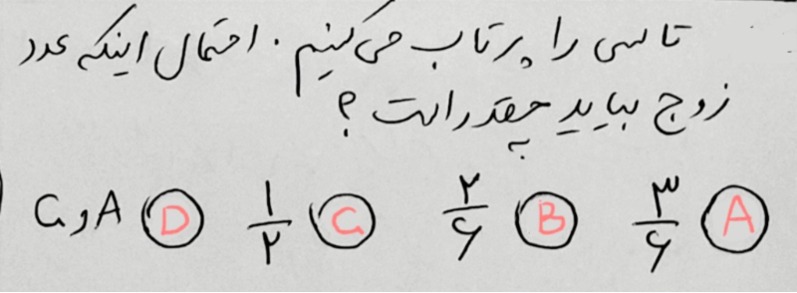 تاسی را پرتاب می‌کنیم. احتمال اینکه عدد
زوج بیاید چقدر است؟
A ۳/۶ B ۲/۶ C ۱/۲ D A و C